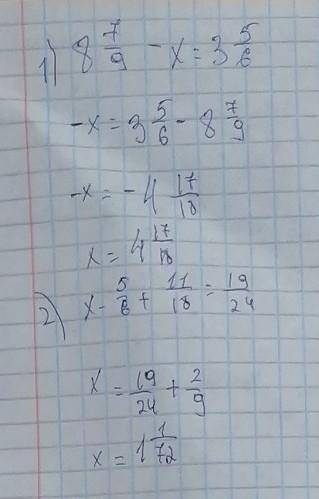 1) 8 7/9 - x = 3 5/6
-x = 3 5/6 - 8 7/9
-x = -4 17/18
x = 4 17/18
2) x - 5/6 + 11/18 = 19/24
x = 19/24 + 2/9
x = 1 1/72